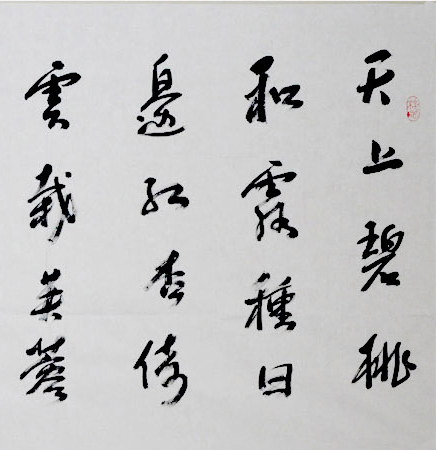 天上碧桃
和露種日
邊紅杏倚
雲栽芙蓉